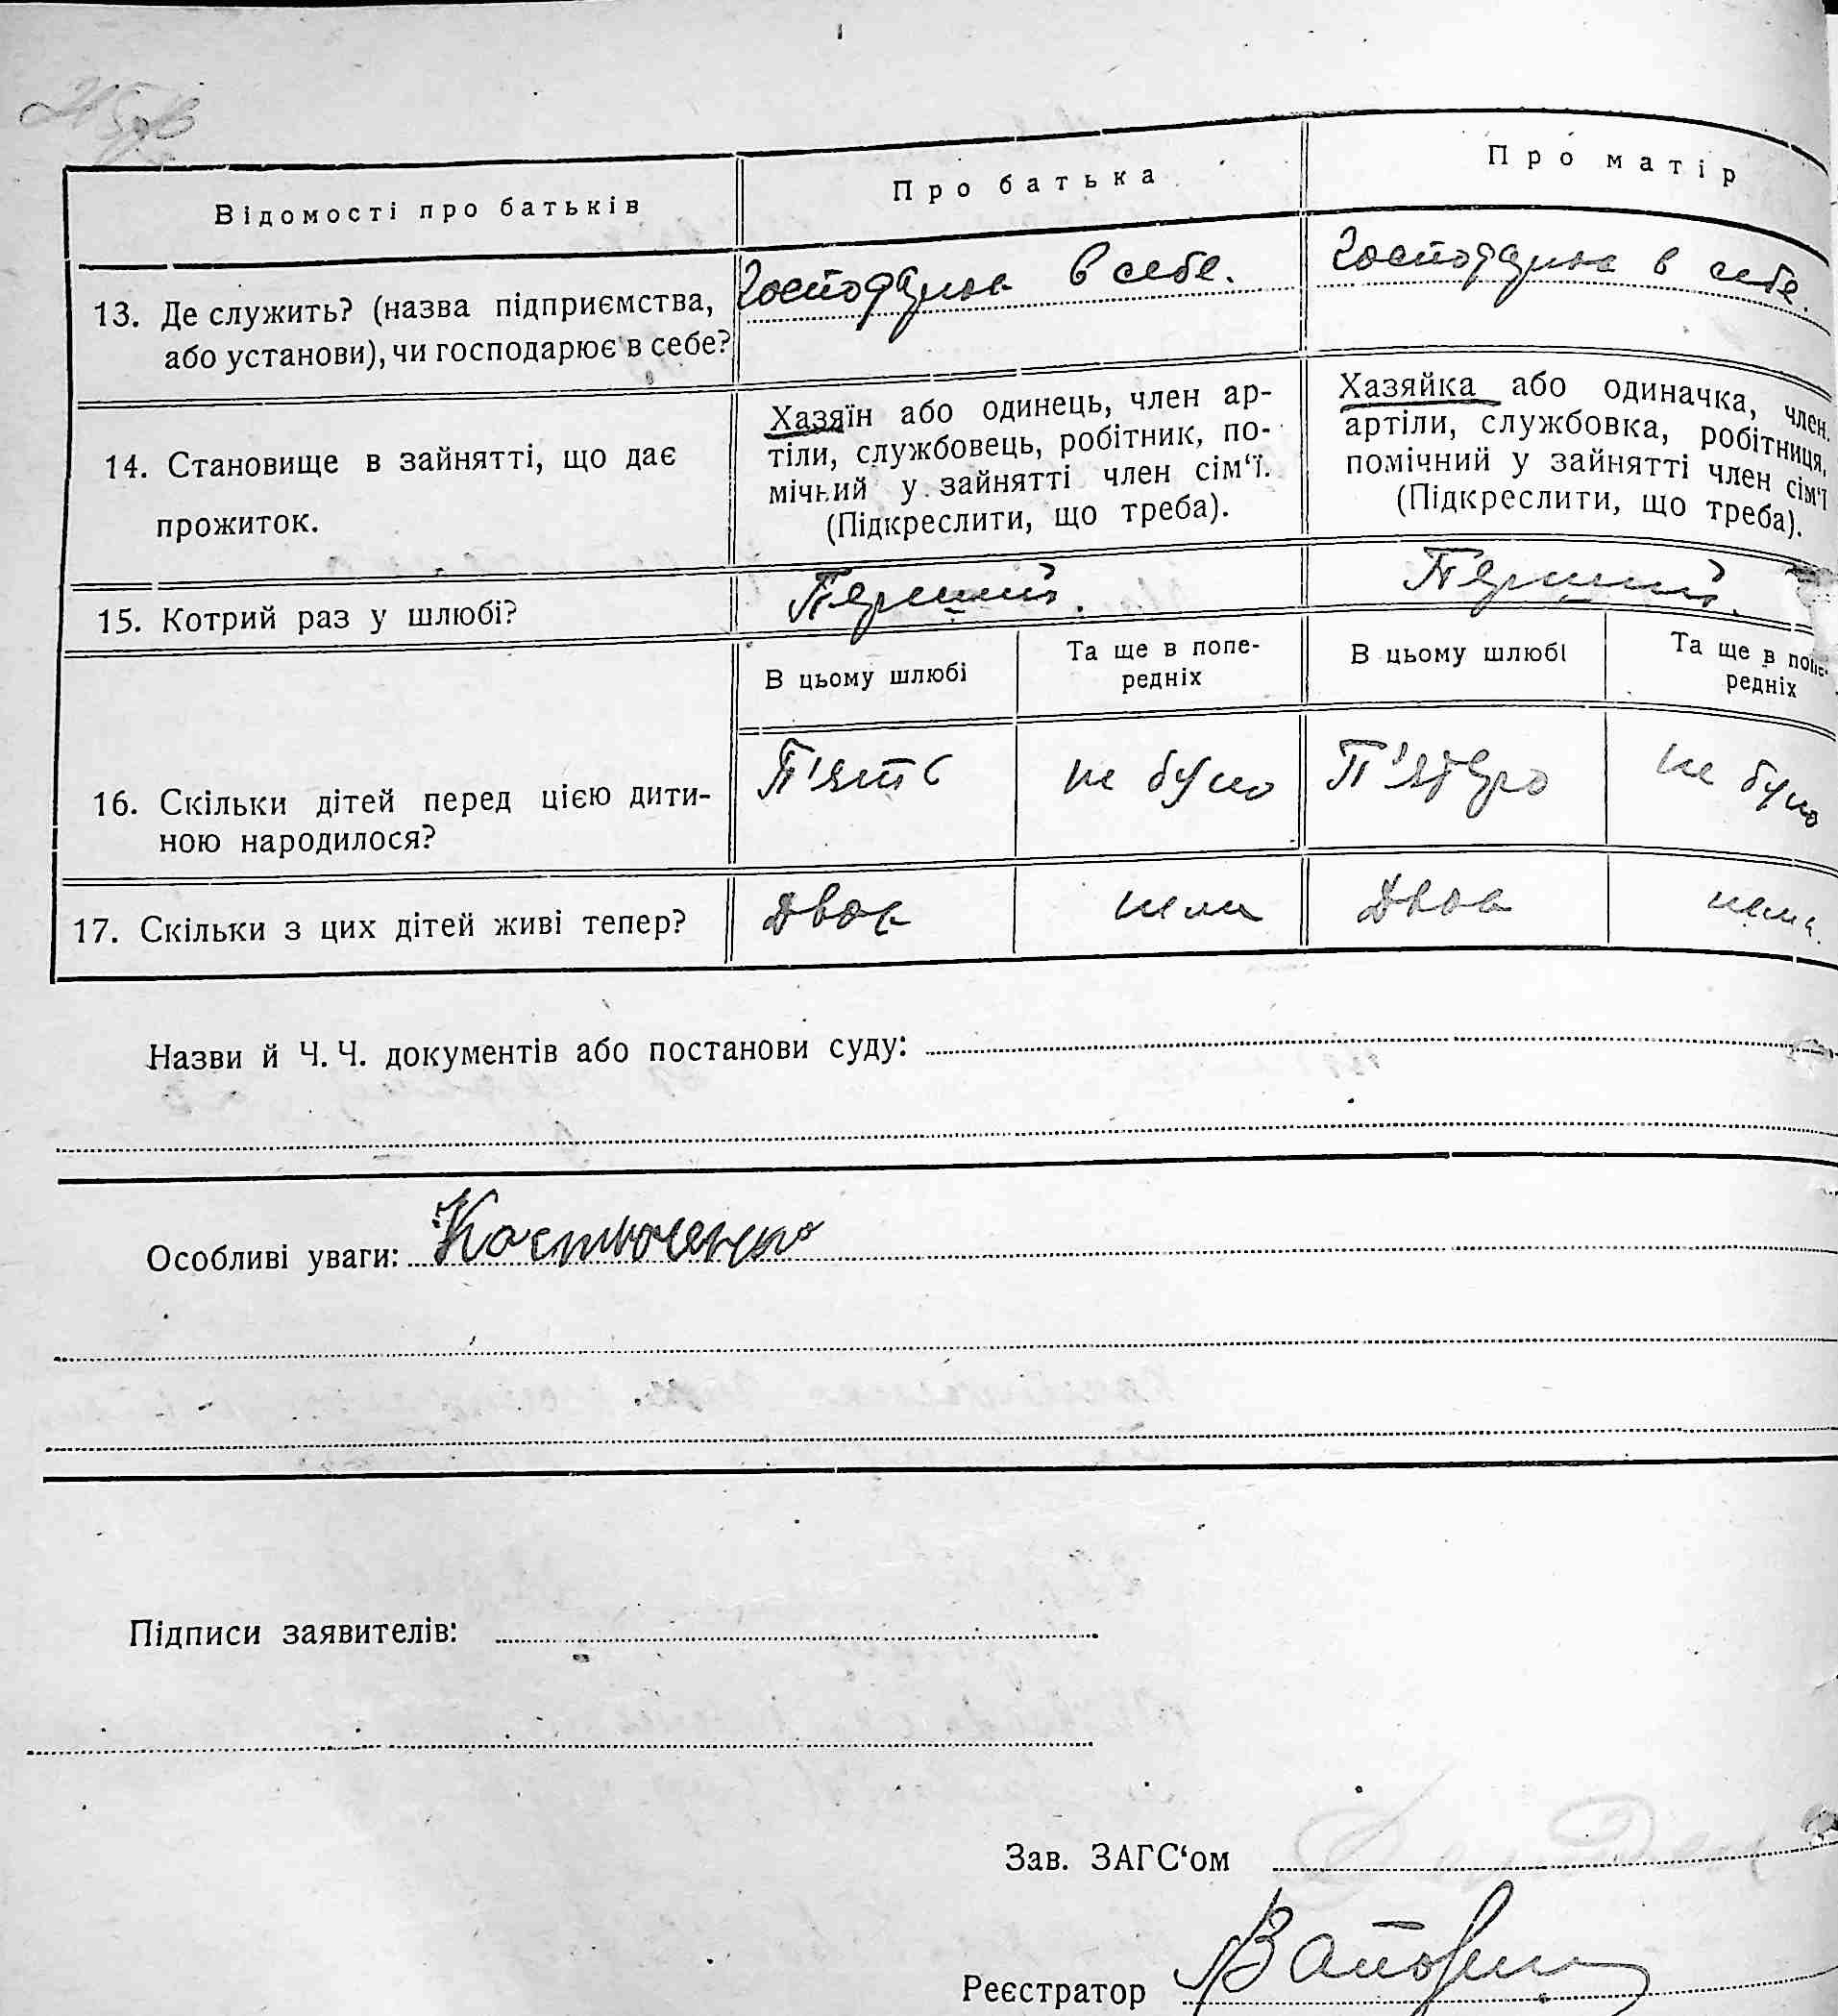 Відомості про батьків Про батька Про матір
13. Де служить? (назва підприємства, або установи), чи господарює в себе?
Господарює в себе.
Господарює в себе.
14. Становище в зайнятті, що дає
прожиток.
Хазяїн або одинець, член ар-
тіли, службовець, робітник, по-
мічний у зайнятті член сім‘ї.
(Підкреслити, що треба).
Хазяйка або одиначка, член
артіли, службовка, робітниця,
помічний у зайнятті член сім‘ї
(Підкреслити, що треба).
15. Котрий раз у шлюбі? Перший. Перший.
В цьому шлюбі
Та ще в попе-
редніх
В цьому шлюбі
Та ще в попе-
редніх
16. Скільки дітей перед цією дити-
ною народилося?
П'ять не було П'ятеро не було
17. Скільки з цих дітей живі тепер? Двоє нема Двоє нема.
Назви й Ч. Ч. документів або постанови суду:
Особливі уваги: Костюченко
Підписи заявителів:
Зав. ЗАГС‘ом
Реєстратор